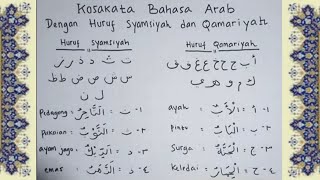 Kosakata Bahasa Arab
Dengan Huruf Syamsiyah dan Qamariyah
Huruf Syamsiyah
ت ث د ذ ر ز
س ش ص ض ط ظ
١- ت : اَلتَّاجِرُ : Pedagang
٢- ث : اَلثَّوْبُ : Pakaian
٣- د : اَلدِّيْكُ : ayam jago
٤- ذ : اَلذَّهَبُ : emas
Huruf Qamariyah
أ ب ج ح خ ع غ ف ق
ك م و ه ي
١- أ : اَلْأَبُ : ayah
٢- ب : اَلْبَابُ : pintu
٣- ج : اَلْجَنَّةُ : Surga
٤- ح : اَلْحِمَارُ : Keledai